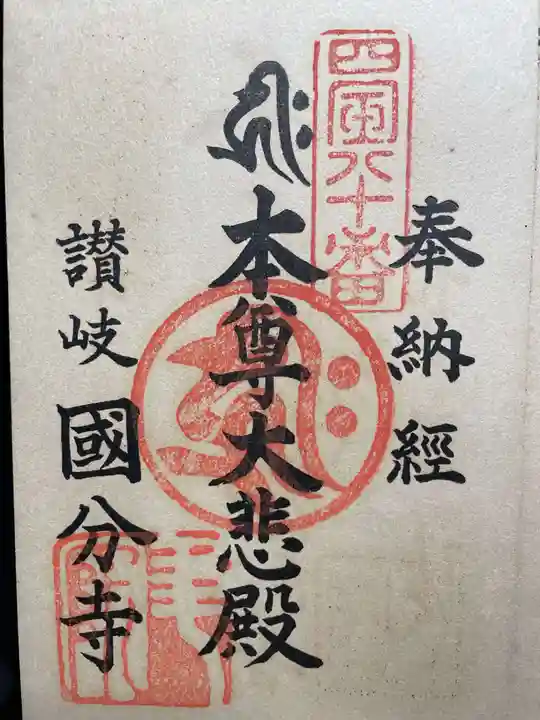 奉納經
四國八十番
𑖮𑖿𑖨𑖱𑖾
本尊大悲殿
讃岐
國分寺